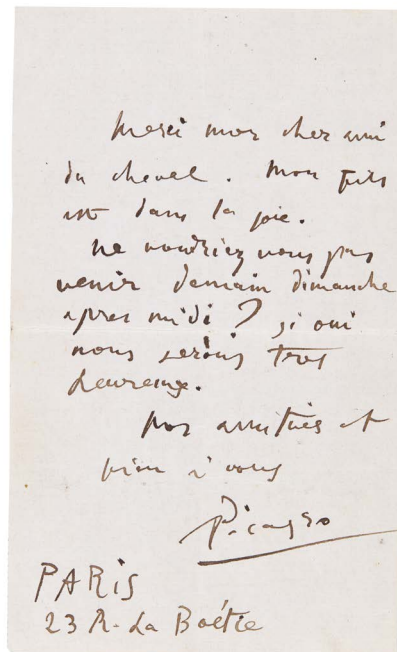 Merci mon cher ami
du cheval. Mon fils
est dans la joie.
Ne voudriez vous pas
venir demain dimanche
apres midi ? si oui
nous serions tres
heureux.
Nos amitiés et
bien a vous
Picasso
PARIS
23 R. La Boétie